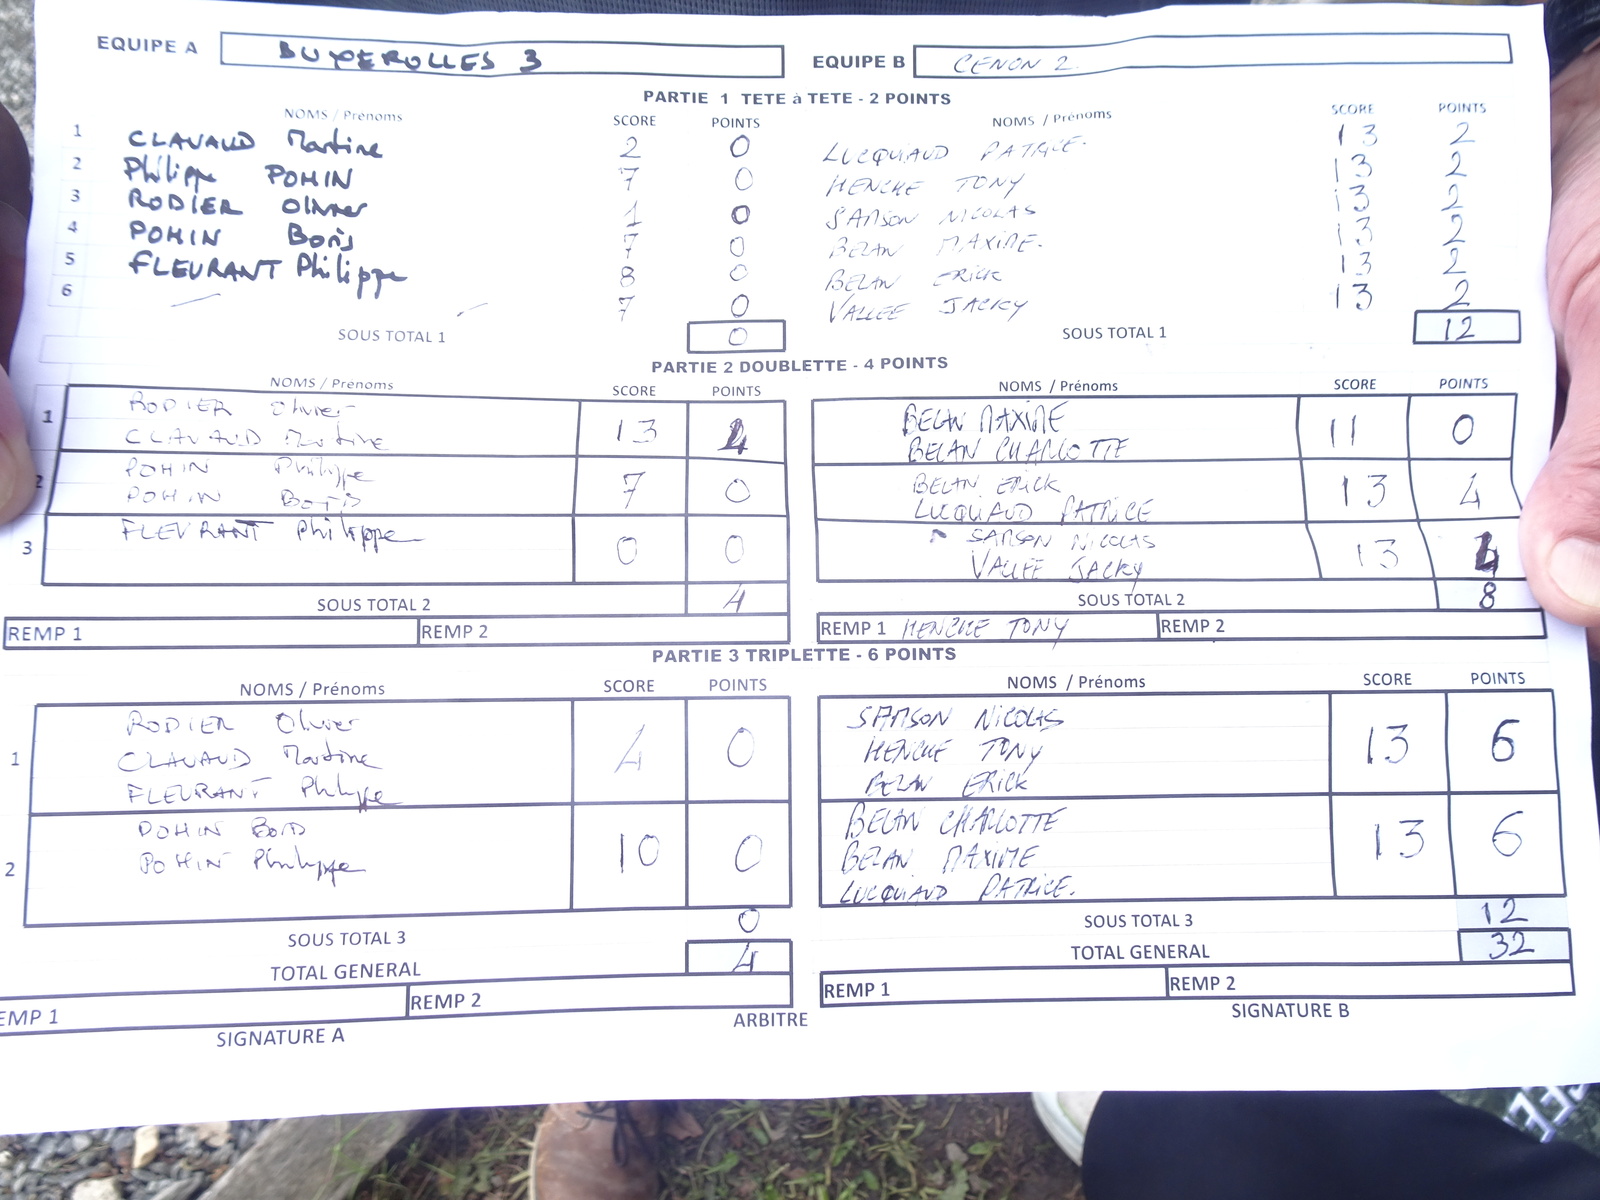 EQUIPE A BUXEROLLES 3 EQUIPE B CENON 2
PARTIE 1 TETE à TETE - 2 POINTS
NOMS / Prénoms SCORE POINTS NOMS / Prénoms SCORE POINTS
1 CLAVAUD Martine 2 0 LUCQUIAUD PATRICE. 13 2
2 Philippe POHIN 7 0 HENCKE TONY 13 2
3 RODIER Olivier 1 0 SAMSON NICOLAS 13 2
4 POHIN Boris 7 0 BELAN MAXIME. 13 2
5 FLEURANT Philippe 8 0 BELAN ERICK 13 2
6 7 0 VALLEE JACKY 13 2
SOUS TOTAL 1 0 SOUS TOTAL 1 12
PARTIE 2 DOUBLETTE - 4 POINTS
NOMS / Prénoms SCORE POINTS NOMS / Prénoms SCORE POINTS
1 RODIER Olivier 13 4 BELAN MAXIME 11 0
CLAVAUD Martine BELAN CHARLOTTE
2 POHIN Philippe 7 0 BELAN ERICK 13 4
POHIN Boris LUCQUIAUD PATRICE
3 FLEURANT Philippe 0 0 SAMSON NICOLAS 13 4
VALLEE JACKY
SOUS TOTAL 2 4 SOUS TOTAL 2 8
REMP 1 REMP 2 REMP 1 HENCKE TONY REMP 2
PARTIE 3 TRIPLETTE - 6 POINTS
NOMS / Prénoms SCORE POINTS NOMS / Prénoms SCORE POINTS
1 RODIER Olivier 4 0 SAMSON NICOLAS 13 6
CLAVAUD Martine HENCKE TONY
FLEURANT Philippe BELAN ERICK
2 POHIN Boris 10 0 BELAN CHARLOTTE 13 6
POHIN Philippe BELAN MAXIME
LUCQUIAUD PATRICE.
SOUS TOTAL 3 0 SOUS TOTAL 3 12
TOTAL GENERAL 4 TOTAL GENERAL 32
EMP 1 REMP 2 REMP 1 REMP 2
SIGNATURE A ARBITRE SIGNATURE B